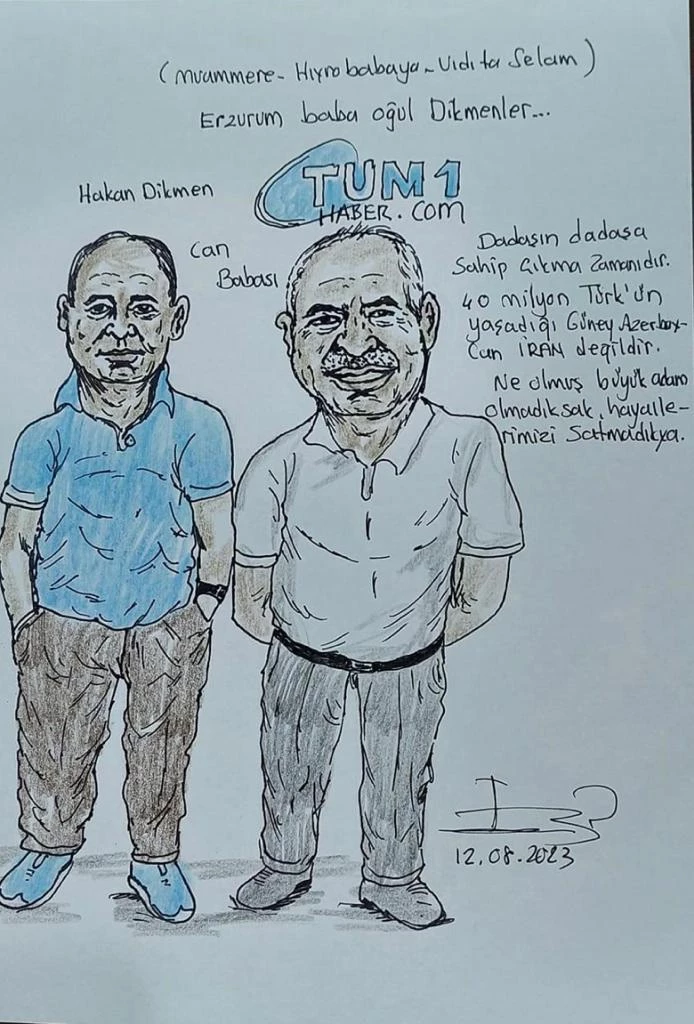 (Muammere - Hıyro babaya - Vidi ta Selam)
Erzurum baba oğul Dikmenler...
Hakan Dikmen
TUM1
HABER.COM
Can
Babası
Dadaşın dadaşa
Sahip Çıkma Zamanıdır.
40 milyon Türk'ün
yaşadığı Güney Azerbay-
Can İRAN değildir.
Ne olmuş büyük adam
olmadıksak, hayalle-
rimizi Satmadıkya.
12.08.2023